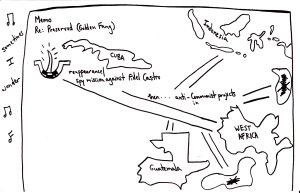 Memo
Re: Preserved (Golden Fang)
sometimes
I
wonder
CUBA
reappearance/
Spy mission against Fidel Castro
Indonesia
then.... anti-Communist projects
in
WEST
AFRICA
Guatemala